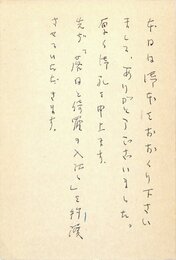 本日は御本をおおくり下さい
まして、ありがとうございました。
厚く御礼を申上ます。
先ず「落日と綺羅の入江」を拝読
させていただきます。